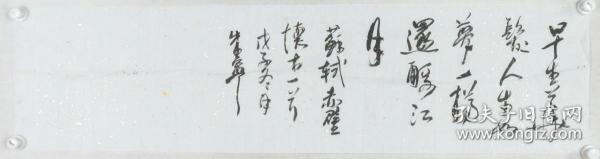 早生華
髮人生如
夢一樽
還酹江
月
蘇軾赤壁
懷古一首
戊子冬月
孔夫子旧书网